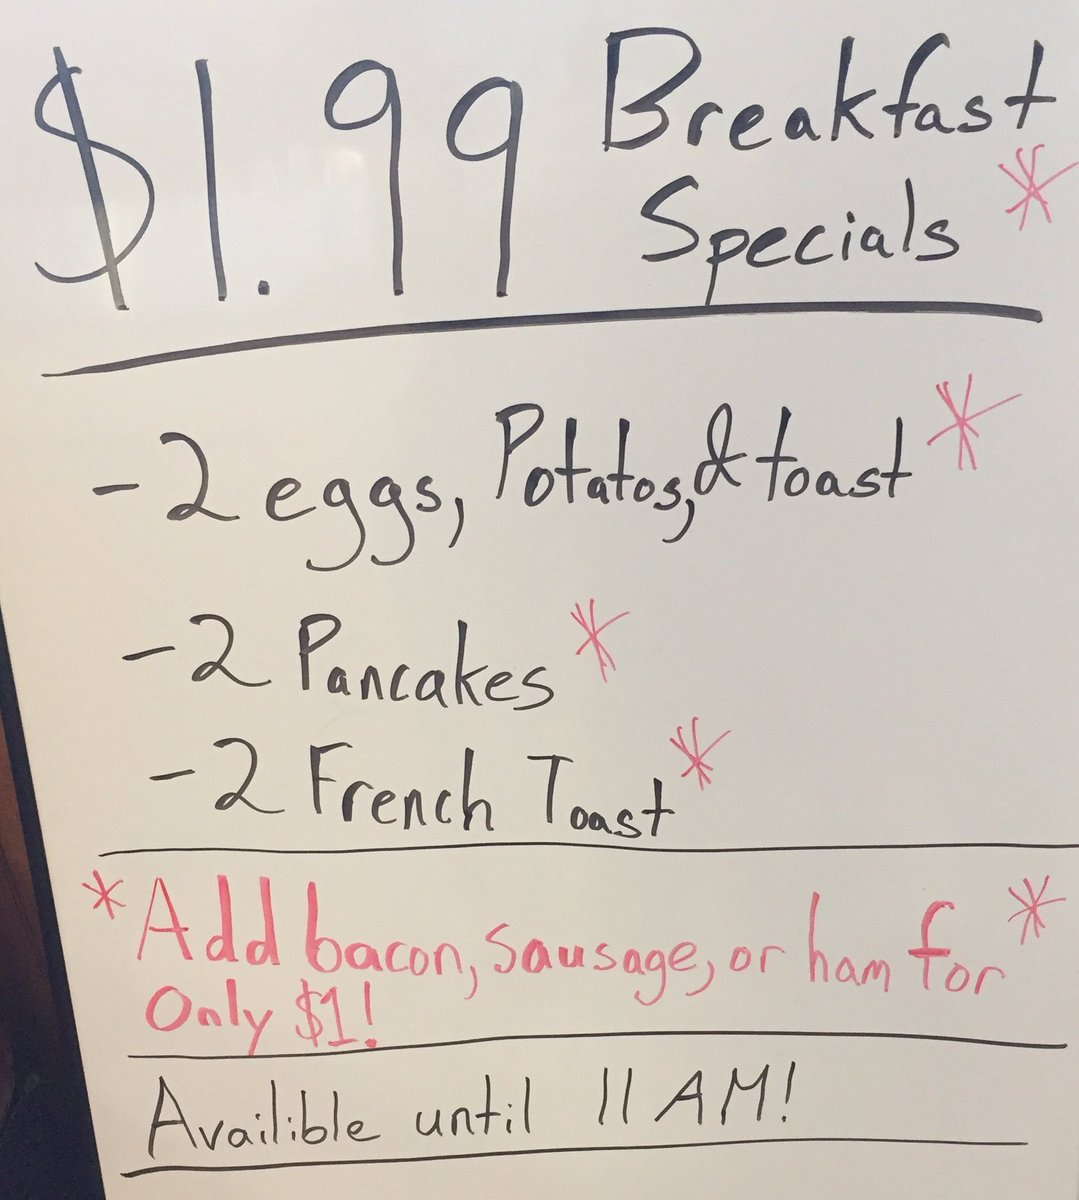 $1.99 Breakfast
Specials *
-2 eggs, Potatos, & toast *
-2 Pancakes *
-2 French Toast *
* Add bacon, sausage, or ham for *
Only $1!
Availible until 11 AM!